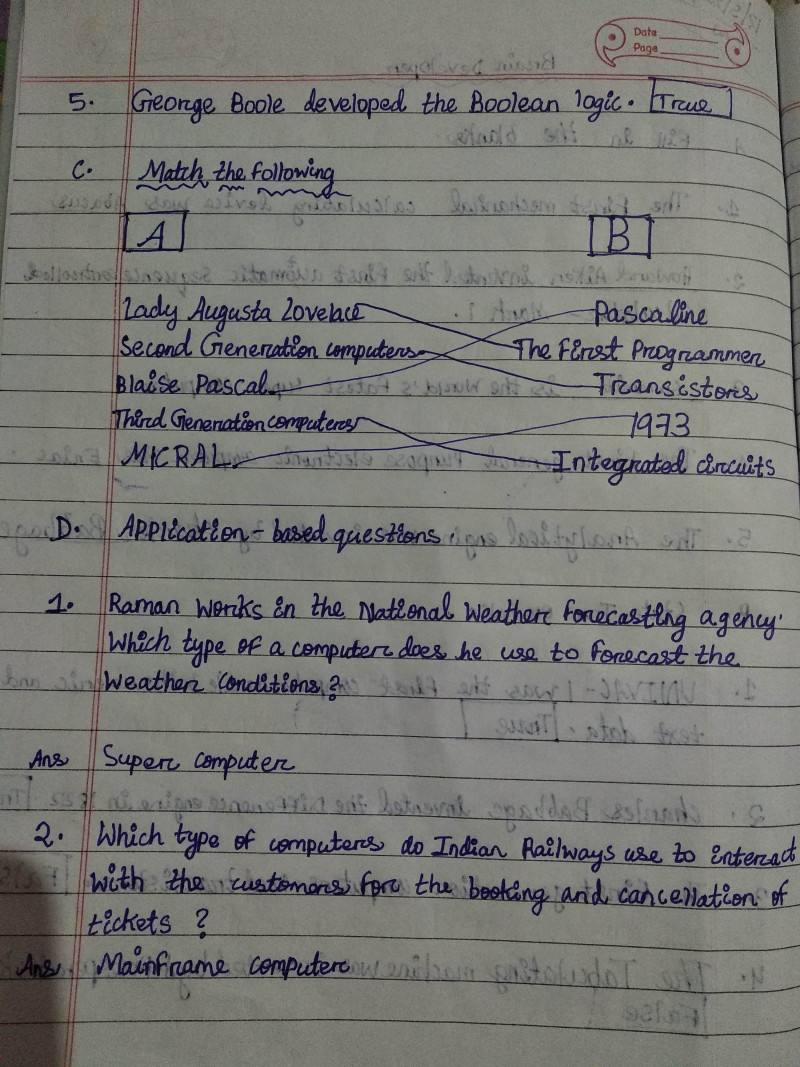 Date
Page
5. George Boole developed the Boolean logic. True
C. Match the following
A B
Lady Augusta Lovelace Pascaline
Second Generation computers The First Programmer
Blaise Pascal Transistors
Third Generation computers 1973
MICRAL Integrated circuits
D. Application-based questions.
1. Raman works in the National Weather forecasting agency.
Which type of a computer does he use to forecast the
weather conditions?
Ans Super computer
2. Which type of computers do Indian Railways use to interact
with the customers for the booking and cancellation of
tickets?
Ans Mainframe computer